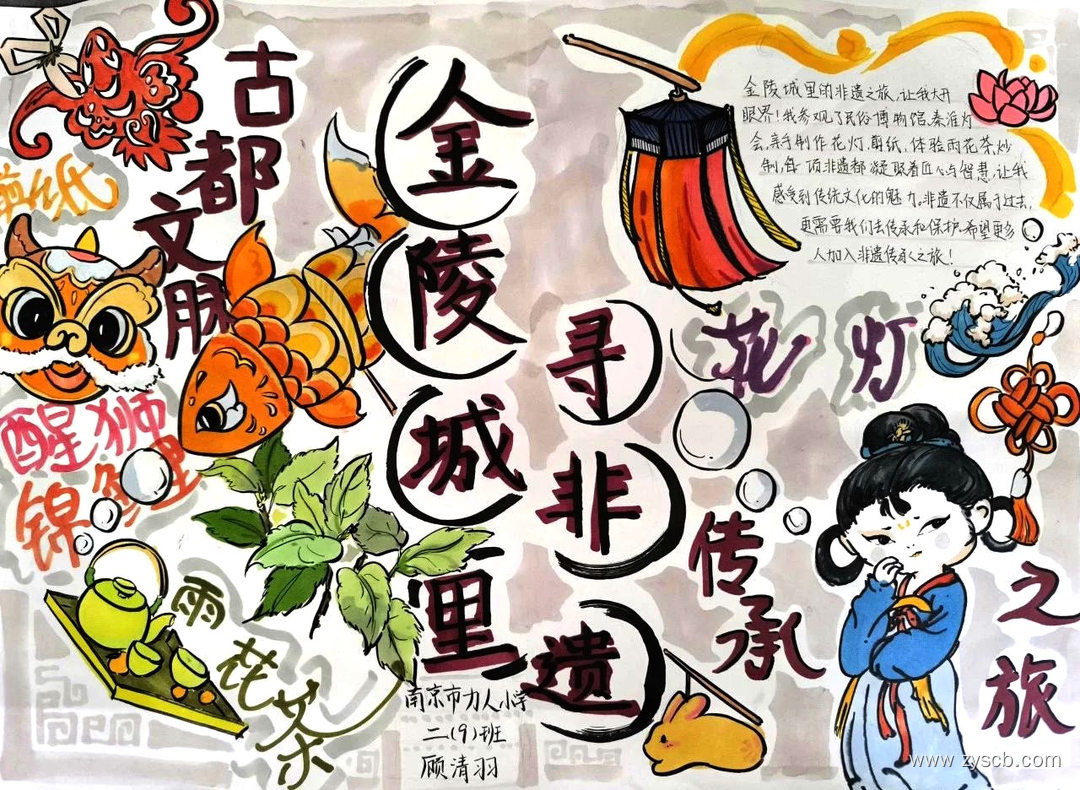 古都文脉
剪纸
醒狮
锦鲤
雨花茶
金陵城里
寻非遗
南京市力人小学
二(9)班
顾清羽
金陵城里的非遗之旅,让我大开
眼界!我参观了民俗博物馆、秦淮灯
会,亲手制作花灯、剪纸,体验雨花茶炒
制,每一项非遗都凝聚着匠心与智慧,让我
感受到传统文化的魅力。非遗不仅属于过去,
更需要我们去传承和保护。希望更多
人加入非遗传承之旅!
花灯
传承
之旅
www.zyscb.com